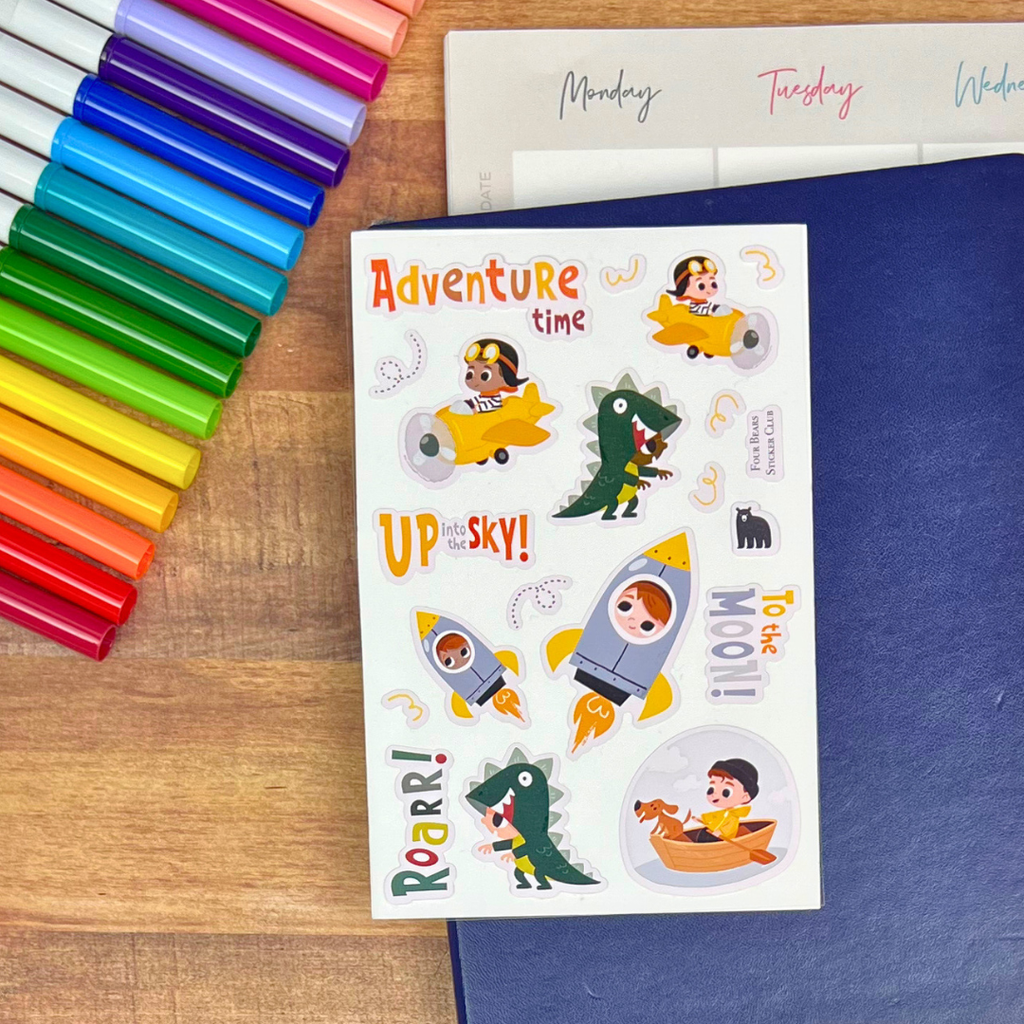 Monday Tuesday Wedne
DATE
Adventure
time
Four Bears
Sticker Club
UP into
the SKY!
To the
MOON!
ROaRR!